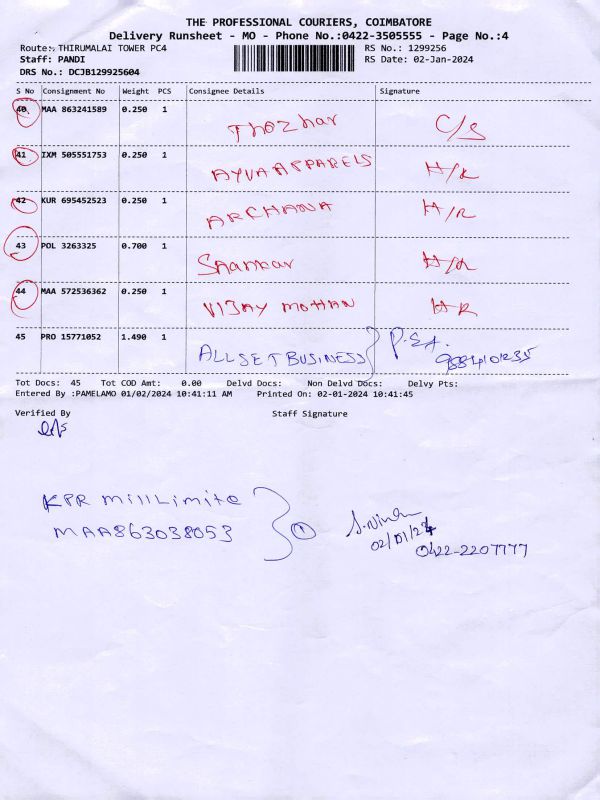 THE PROFESSIONAL COURIERS, COIMBATORE
Delivery Runsheet - MO - Phone No.:0422-3505555 - Page No.:4
Route: THIRUMALAI TOWER PC4 RS No.: 1299256
Staff: PANDI RS Date: 02-Jan-2024
DRS No.: DCJB129925604
S No Consignment No Weight PCS Consignee Details Signature
40 MAA 863241589 0.250 1 Thozhar C/S
41 IXM 505551753 0.250 1 AYVA APPARELS H/R
42 KUR 695452523 0.250 1 ARCHANA H/R
43 POL 3263325 0.700 1 Shankar H/R
44 MAA 572536362 0.250 1 VIJAY MOHAN HR
45 PRO 15771052 1.490 1 ALLSET BUSINESS
Tot Docs: 45 Tot COD Amt: 0.00 Delvd Docs: Non Delvd Docs: Delvy Pts:
Entered By :PAMELAMO 01/02/2024 10:41:11 AM Printed On: 02-01-2024 10:41:45
Verified By Staff Signature
KPR mill Limite
MAA863038053 1
02/01/24
0422-2207777